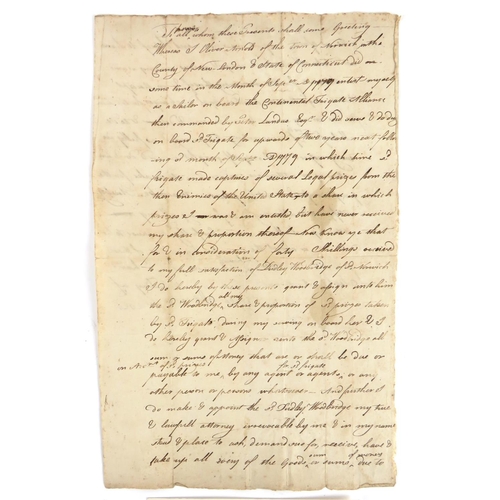 people
To all whom these Presents shall come Greeting
Whereas I Oliver Arnold of the Town of Norwich in the
County of New London & State of Connecticut did on
some time in the Month of Sept. AD 1779 enlist myself
as a Sailor on board the Continental Frigate Alliance
then commanded by Landais Esq. & did serve & do duty
on board sd. Frigate for upwards of two years next follow
ing sd month of Sept. AD 1779 in which time sd
frigate made captures of several Legal prizes from the
then Enemies of the United States to a share in which
prizes I was & am entitled but have never received
my share & proportion thereof Now know ye that
for & in consideration of forty Shillings received
to my full satisfaction of Dudley Woodbridge of sd. Norwich
I do hereby by these presents grant & assign unto him
the sd. Woodbridge all my share & proportion of sd prizes taken
by sd. Frigate during my serving on board her & I
do hereby grant & assign unto the sd. Woodbridge all
sum or sums of Money that are or shall be due or
in Nt. of sd. prizes
payable to me, by any agent or agents for sd frigate, or any
other person or persons whatsoever And further I
do make & appoint the sd. Dudley Woodbridge my true
& lawfull attorney irrevocable by me & in my name
stead & place to ask, demand sue for, receive, have &
take up all every of the Goods, sum or sums of money due to